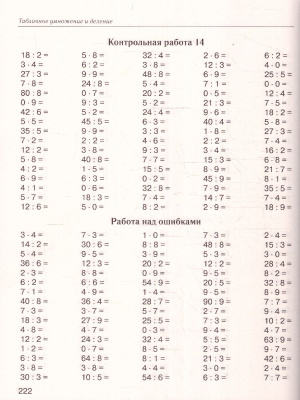 Табличное умножение и деление
Контрольная работа 14
18 : 2 = 5 · 8 = 32 : 4 = 2 · 6 = 6 : 2 =
3 · 4 = 6 : 2 = 0 · 2 = 12 : 3 = 4 · 0 =
27 : 3 = 9 · 9 = 48 : 8 = 6 · 9 = 25 : 5 =
7 · 8 = 24 : 8 = 5 · 4 = 7 : 1 = 0 · 0 =
80 : 8 = 0 · 7 = 20 : 2 = 5 · 5 = 12 : 4 =
0 · 9 = 9 : 3 = 5 · 2 = 21 : 3 = 7 · 5 =
42 : 6 = 5 · 2 = 24 : 4 = 9 · 6 = 18 : 2 =
5 · 5 = 45 : 5 = 6 · 3 = 40 : 4 = 5 · 8 =
35 : 5 = 9 · 9 = 3 : 3 = 1 · 8 = 27 : 3 =
7 · 2 = 2 : 2 = 4 · 6 = 2 : 2 = 7 · 4 =
12 : 2 = 3 · 8 = 90 : 9 = 3 · 4 = 16 : 2 =
5 · 8 = 40 : 8 = 7 · 7 = 15 : 3 = 6 · 8 =
4 : 2 = 1 · 5 = 15 : 5 = 9 · 5 = 81 : 9 =
6 · 9 = 6 : 3 = 0 · 2 = 45 : 9 = 8 · 1 =
4 : 1 = 0 · 6 = 32 : 8 = 7 · 9 = 35 : 5 =
5 · 7 = 18 : 3 = 7 · 4 = 14 : 7 = 7 · 4 =
12 : 6 = 5 · 0 = 8 : 2 = 2 · 9 = 18 : 9 =
Работа над ошибками
3 · 4 = 7 · 3 = 1 · 0 = 7 · 3 = 2 · 4 =
14 : 2 = 30 : 6 = 8 : 8 = 48 : 8 = 15 : 3 =
5 · 4 = 9 · 5 = 3 · 9 = 5 · 3 = 0 · 4 =
36 : 6 = 12 : 3 = 20 : 2 = 12 : 2 = 28 : 4 =
2 · 2 = 0 · 8 = 0 · 9 = 9 · 5 = 8 · 2 =
6 : 2 = 6 : 6 = 54 : 9 = 20 : 5 = 32 : 8 =
7 · 1 = 4 · 9 = 1 · 4 = 9 · 5 = 8 · 9 =
40 : 8 = 36 : 4 = 28 : 7 = 90 : 9 = 7 : 7 =
7 · 3 =
18 : 3 = 27 : 9 = 25 : 5 = 7 : 7 = 10 : 2 =
4 · 8 = 4 · 7 = 0 · 3 = 9 · 4 = 4 · 7 =
12 : 2 = 24 : 3 = 32 : 4 = 5 : 5 = 63 : 9 =
1 · 2 = 0 · 7 = 9 · 9 = 4 · 4 = 0 · 2 =
6 : 3 = 64 : 8 = 8 : 1 = 21 : 3 = 42 : 6 =
3 · 8 = 3 · 8 = 4 · 3 = 4 · 4 = 2 · 4 =
30 : 3 = 10 : 5 = 54 : 6 = 6 : 3 = 7 : 7 =
222